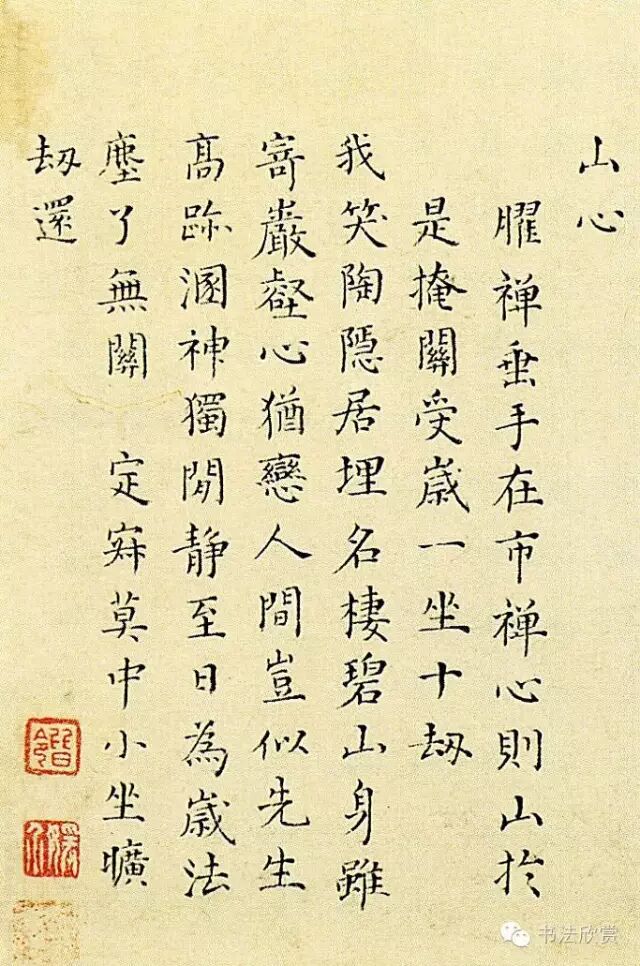 山心
臞禅垂手在市禅心則山於
是掩關受歲一坐十劫
我笑陶隱居埋名棲碧山身雖
寄巖壑心猶戀人間豈似先生
高跡溷神獨閒靜至日為歲法
塵了無關 定寂莫中小坐曠
劫還
书法欣赏